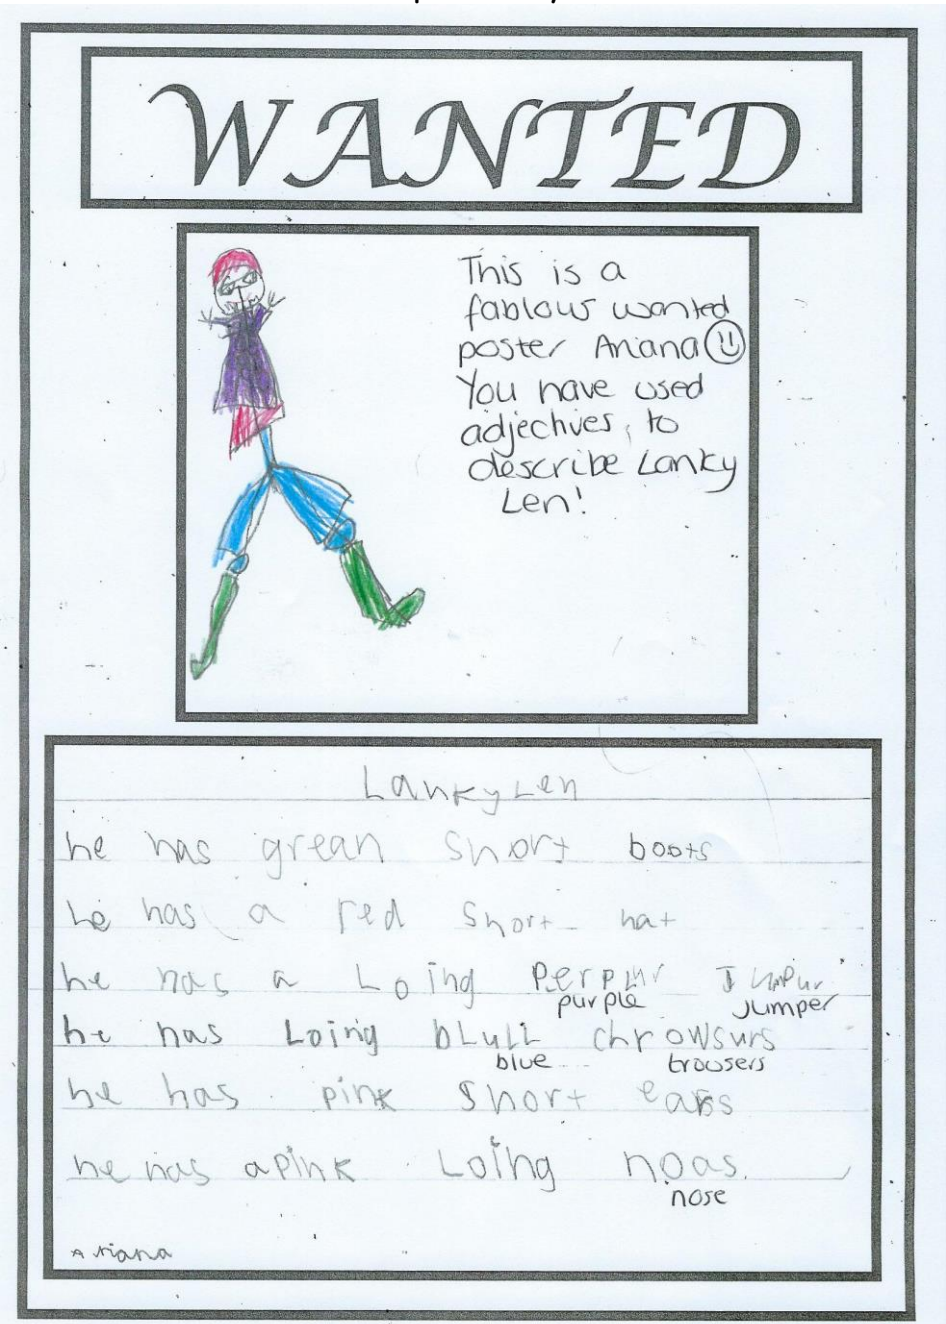 WANTED
This is a
fablous wanted
poster Ariana
You have used
adjectives, to
describe Lanky
Len!
Lanky Len
he has grean short boots
he has a red short hat
he has a Loing Perpur Jumpur
purple Jumper
he has Loing bLuLL chrowsurs
blue trousers
he has pink short ears
he has a pink Loing noas.
nose
Ariana